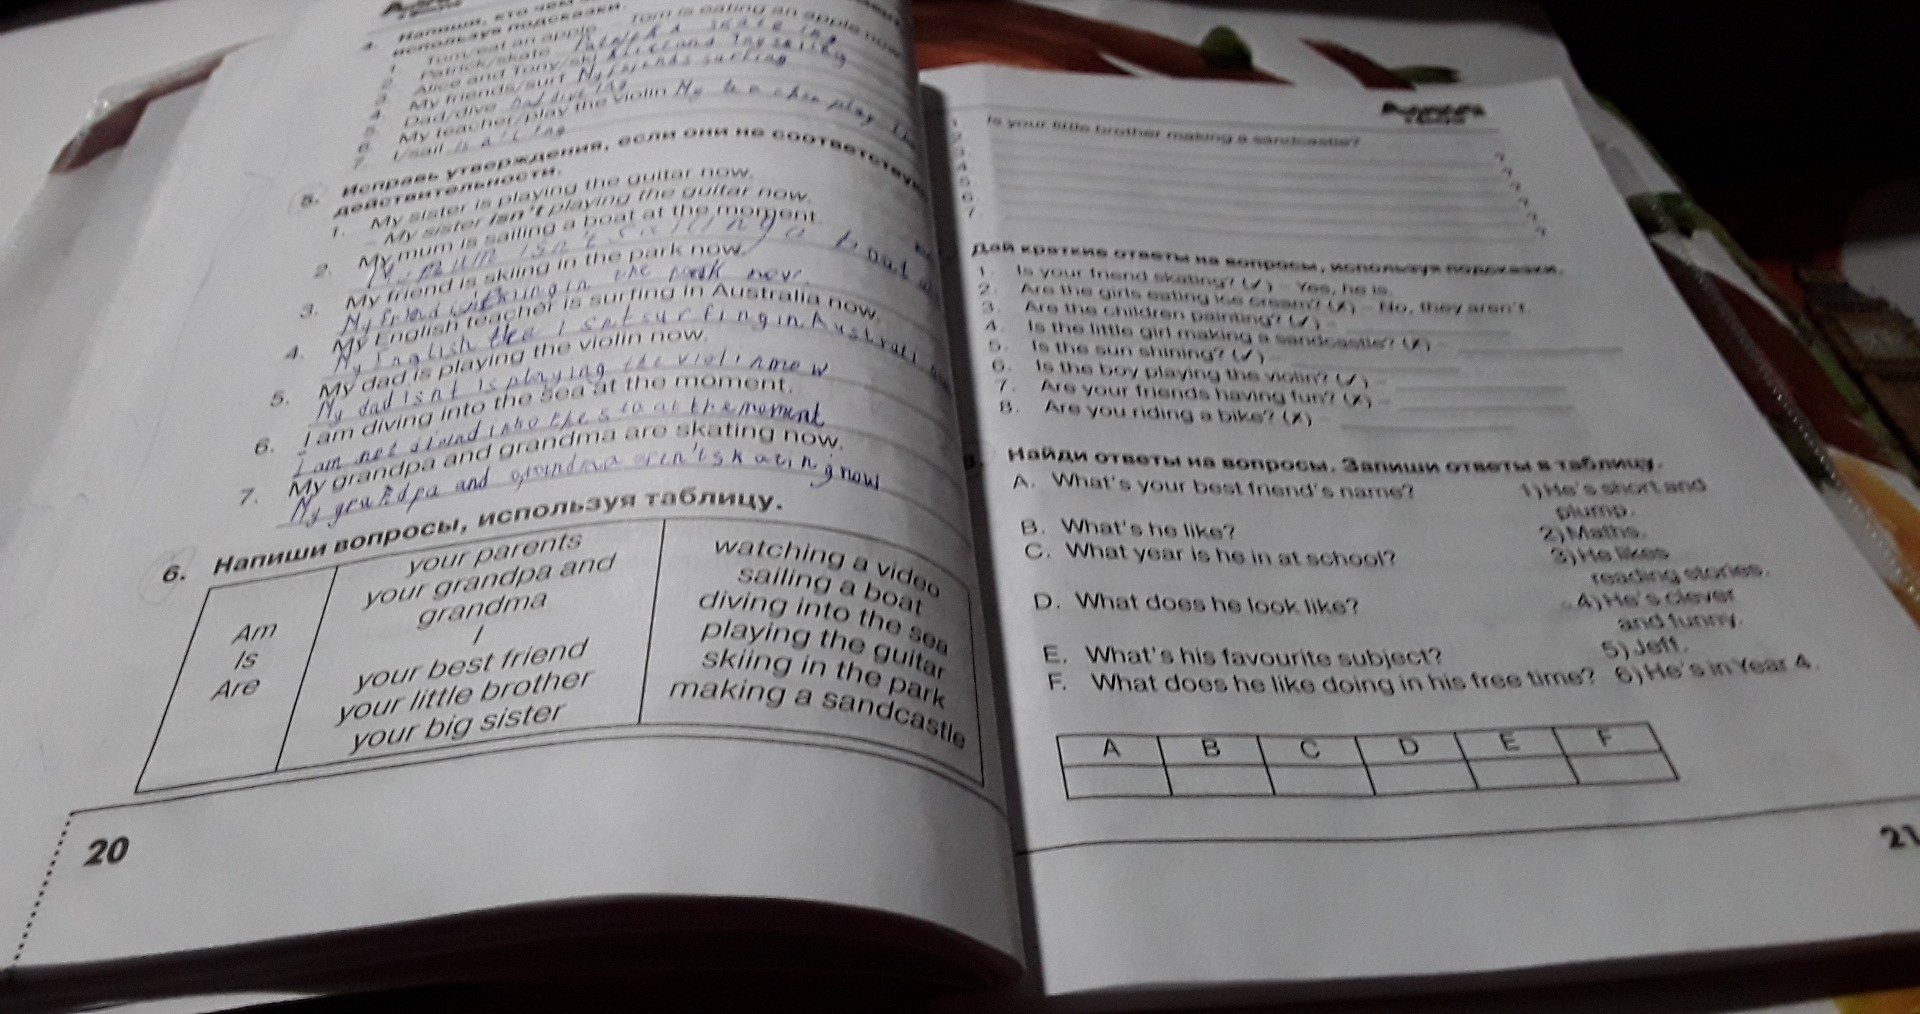 4. Напиши, кто чем
используя подсказки.
1. Tom/eat an apple – Tom is eating an apple now.
2. Patrick/skate
3. Alice and Tony/ski
4. My friends/surf My friends surfing
5. Dad/dive
6. My teacher/play the violin My teacher play
7. I/sail
5. Исправь утверждения, если они не соответствуют
действительности.
1. My sister is playing the guitar now.
– My sister isn't playing the guitar now.
2. My mum is sailing a boat at the moment.
My mum isn't sailing a boat
3. My friend is skiing in the park now.
My friend in the park now.
4. My English teacher is surfing in Australia now.
My English tea isnt surfing in Australi
5. My dad is playing the violin now.
My dad isnt is playing the violi now
6. I am diving into the sea at the moment.
i am not divind into the sea at the moment
7. My grandpa and grandma are skating now.
My grandpa and grandma aren't skating now
6. Напиши вопросы, используя таблицу.
Am
Is
Are
your parents
your grandpa and
grandma
I
your best friend
your little brother
your big sister
watching a video
sailing a boat
diving into the sea
playing the guitar
skiing in the park
making a sandcastle
20
Is your little brother making a sandcastle?
Дай краткие ответы на вопросы, используя подсказки.
1. Is your friend skating? (✓) – Yes, he is.
2. Are the girls eating ice cream? (✗) – No, they aren't.
3. Are the children painting? (✓) –
4. Is the little girl making a sandcastle? (✗) –
5. Is the sun shining? (✓) –
6. Is the boy playing the violin? (✓) –
7. Are your friends having fun? (✗) –
8. Are you riding a bike? (✗) –
Найди ответы на вопросы. Запиши ответы в таблицу.
A. What's your best friend's name?
B. What's he like?
C. What year is he in at school?
D. What does he look like?
E. What's his favourite subject?
F. What does he like doing in his free time?
1) He's short and
plump.
2) Maths.
3) He likes
reading stories.
4) He's clever
and funny.
5) Jeff.
6) He's in Year 4.
A B C D E F
21